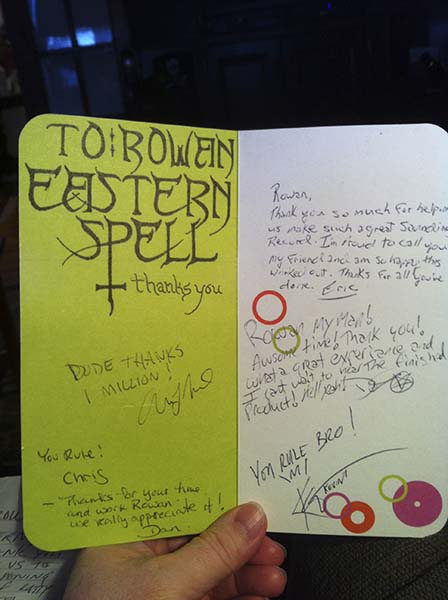 TO: ROWAN
EASTERN
SPELL
thanks you
DUDE THANKS
1 MILLION!
You Rule!
Chris
- Thanks for your time
and work Rowan
we really appreciate it!
Dan.
Rowan,
Thank you so much for helping
us make such a great Sounding
Record. I'm Proud to call you
my Friend and am so happy this
worked out. Thanks For all you've
done. Eric
Rowan My Man!
Awsome time! Thank you!
what a great experience and
I cant wait to hear the finished
Product! Hell yeah!
YOU RULE BRO!